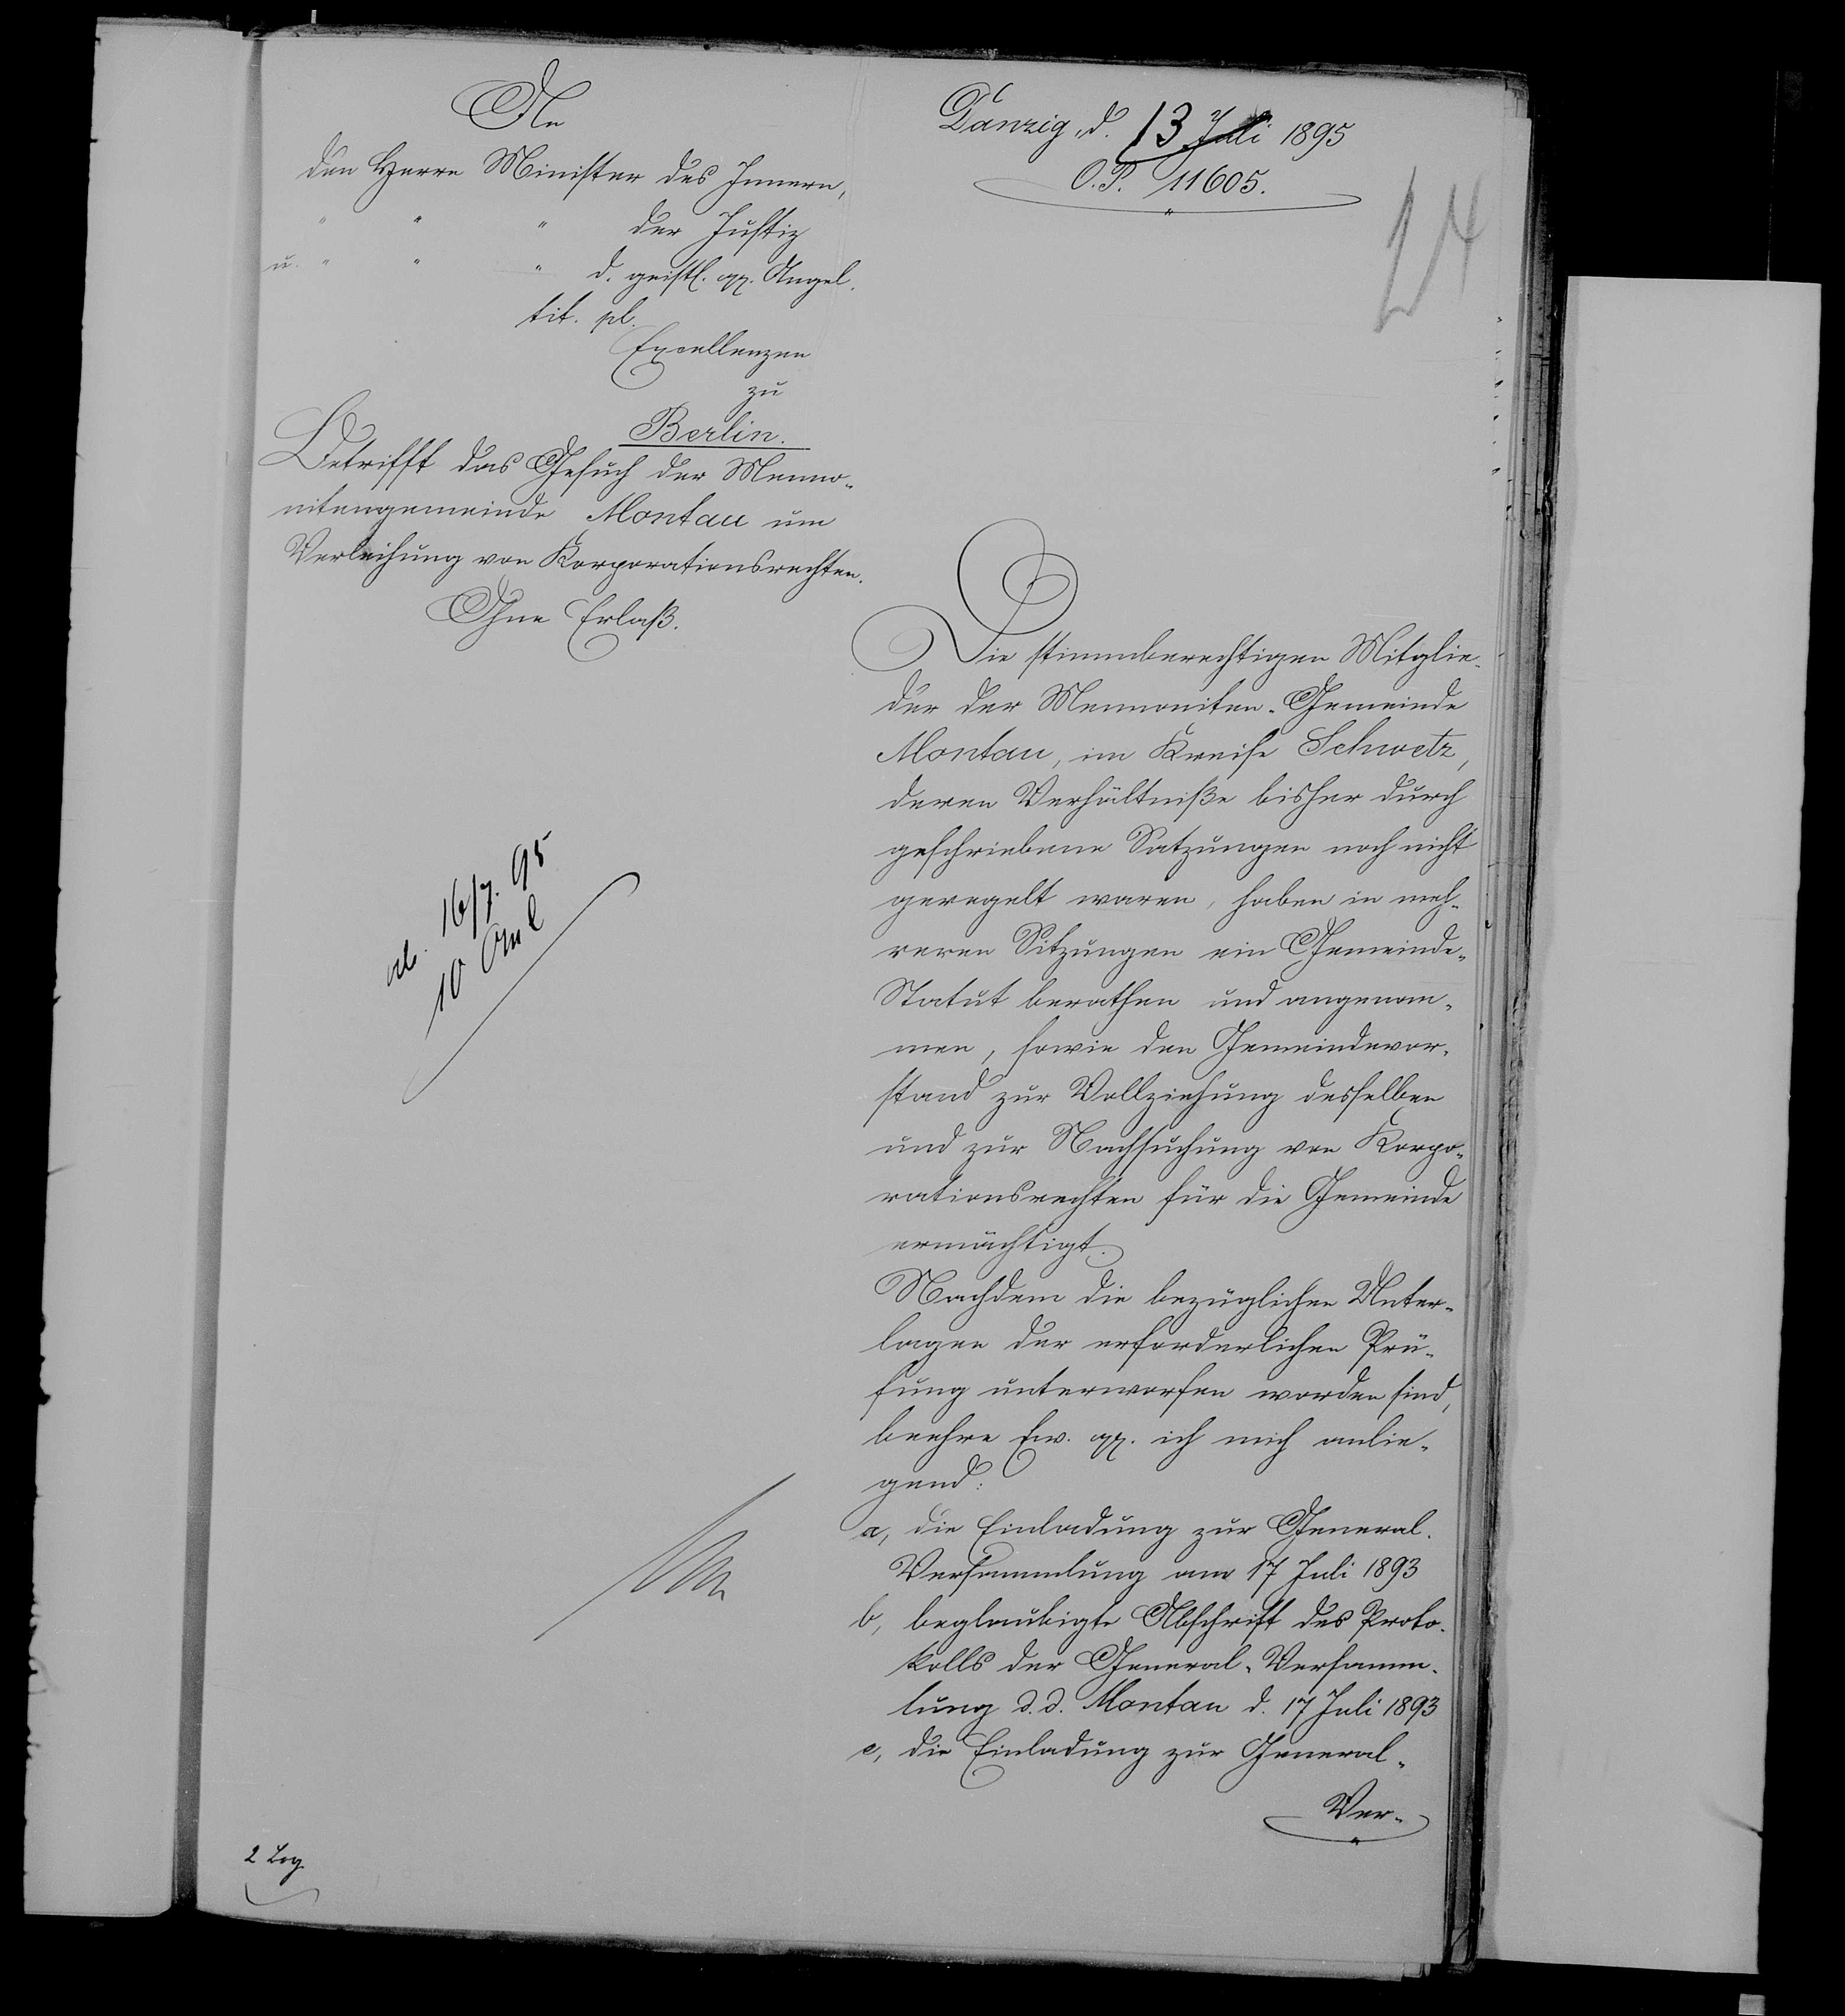 An
den Herrn Minister des Innern,
" " " der Justiz
u. " " " d. geistl. pp. Angel.
tit. pl.
Excellenzen
zu
Berlin.
Betrifft das Gesuch der Menno-
nitengemeinde Montau um
Verleihung von Korporationsrechten.
Ohne Erlaß.
16/7. 95
10
2 Log
Danzig, d. 13 Juli 1895
O.P. 11605.
Die stimmberechtigen Mitglie-
der der Mennoniten-Gemeinde
Montau, im Kreise Schwetz,
deren Verhältniße bisher durch
geschriebene Satzungen noch nicht
geregelt waren, haben in meh-
reren Sitzungen ein Gemeinde-
Statut berathen und angenom-
men, sowie den Gemeindevor-
stand zur Vollziehung desselben
und zur Nachsuchung von Korpo-
rationsrechten für die Gemeinde
ermächtigt.
Nachdem die bezüglichen Unter-
lagen der erforderlichen Prü-
fung unterworfen worden sind,
beehre Ew. pp. ich mich anlie-
gend:
a, die Einladung zur General-
Versammlung am 17 Juli 1893
b, beglaubigte Abschrift des Proto-
kolls der General-Versamm-
lung d. d. Montau d. 17 Juli 1893
c, die Einladung zur General-
Ver-